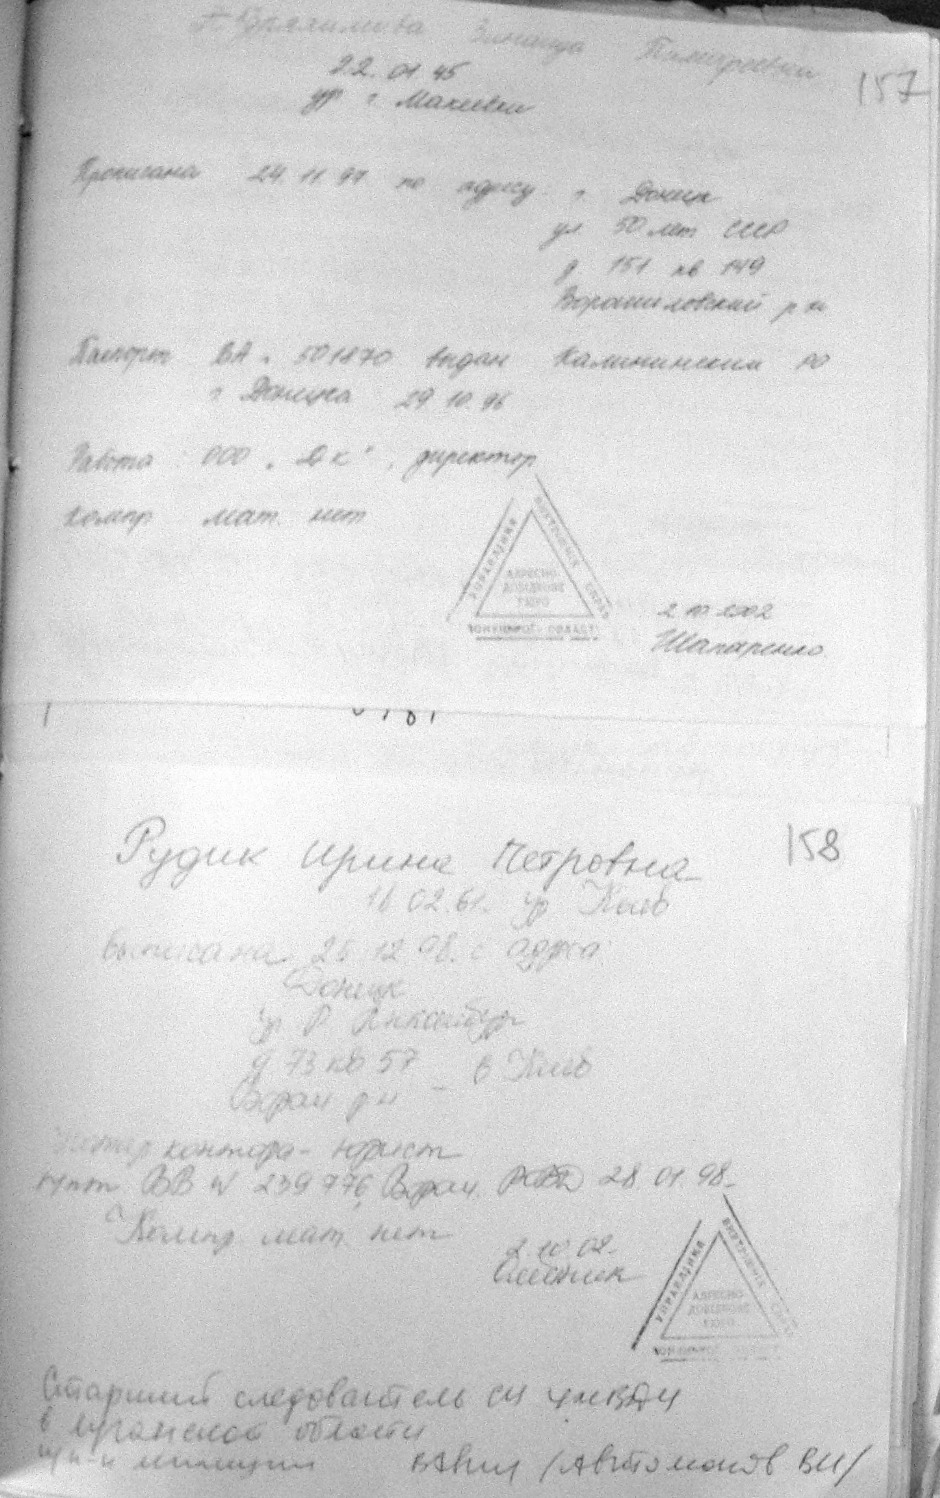 Зинаида
157
22.01.45
ур г. Макеевки
Прописана 24.11.97 по адресу: г. Донецк
ул 50 лет СССР
д 151 кв 149
Ворошиловский р-н
Паспорт ВА № 501870 выдан Калининским РО
г Донецка 29.10.96
Работа: ООО "ДК", директор
Компр мат. нет
УПРАВЛІННЯ ВНУТРІШНІХ СПРАВ
АДРЕСНО-
ДОВІДКОВЕ
БЮРО
ДОНЕЦЬКОЇ ОБЛАСТІ
2.10.2002
Шапаренко
158
Рудик Ирина Петровна
16.02.61. ур Киев
выписана 26.12.98. с адреса:
Донецк
д 73 кв 57 - в Киев
Ворош р-н
контора - юрист
ВВ № 239776 Ворош. РОВД 28.01.98.
Компр. мат. нет
2.10.02.
УПРАВЛІННЯ ВНУТРІШНІХ СПРАВ
АДРЕСНО-
ДОВІДКОВЕ
БЮРО
ДОНЕЦЬКОЇ ОБЛАСТІ
Старший следователь СИ УМВДУ
в Луганской области
п/п-к милиции /Автомонов ВИ/